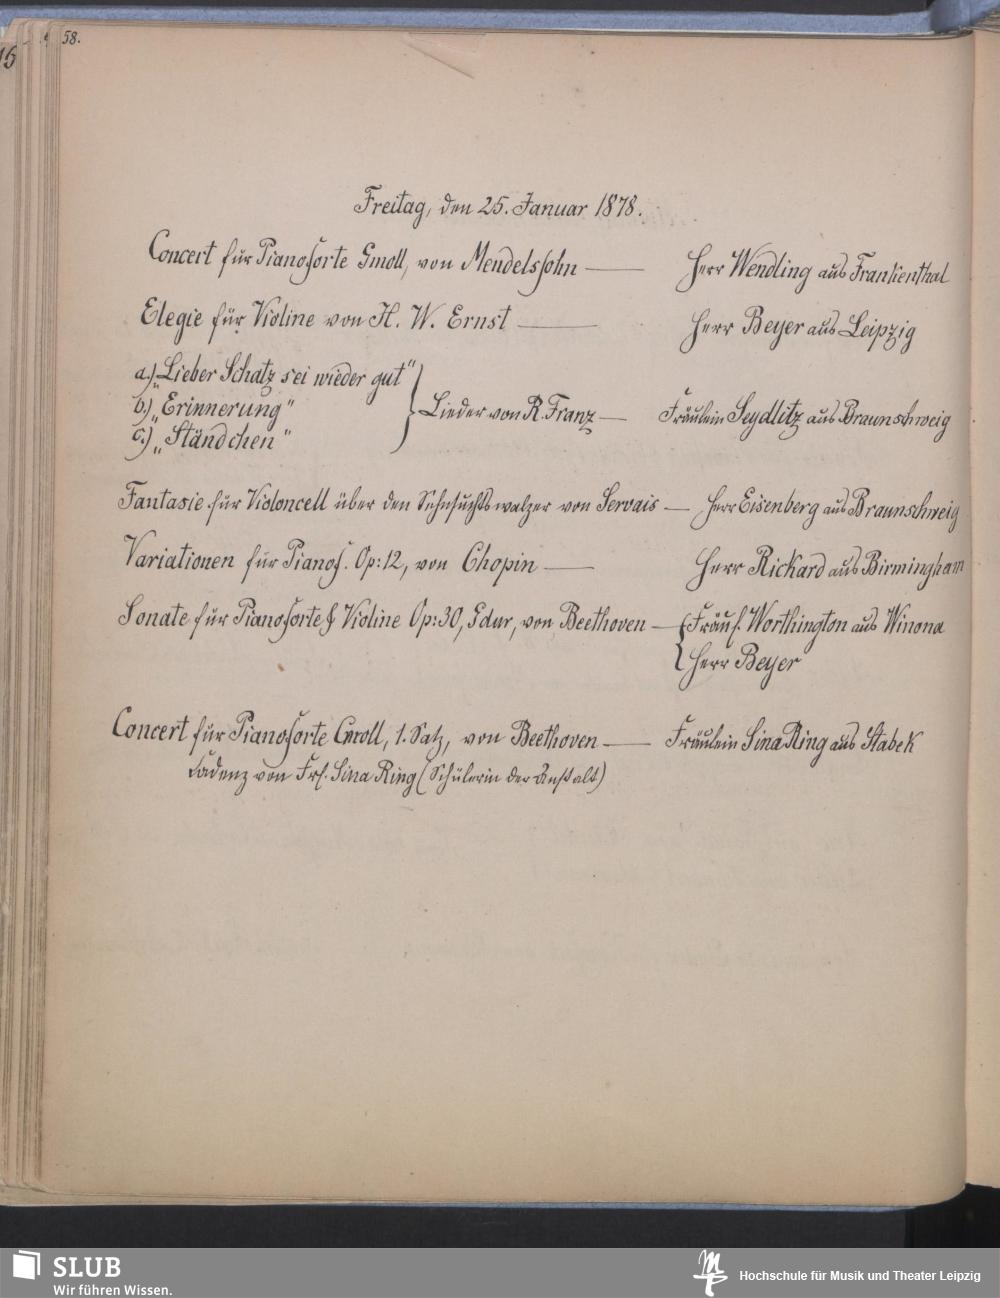 58.
Freitag, den 25. Januar 1878.
Concert für Pianoforte Gmoll, von Mendelssohn — Herr Wendling aus Frankenthal
Elegie für Violine von H. W. Ernst — Herr Beyer aus Leipzig
a.) „Lieber Schatz sei wieder gut“
b.) „Erinnerung“ } Lieder von R. Franz — Fräulein Seydlitz aus Braunschweig
c.) „Ständchen“
Fantasie für Violoncell über den Sehnsuchtswalzer von Servais — Herr Eisenberg aus Braunschweig
Variationen für Pianof. Op: 12, von Chopin — Herr Rickard aus Birmingham
Sonate für Pianoforte & Violine Op: 30, Gdur, von Beethoven — { Fräul. Worthington aus Winona
Herr Beyer
Concert für Pianoforte Cmoll, 1. Satz, von Beethoven — Fräulein Sina Ring aus Stabek
Cadenz von Frl. Sina Ring (Schülerin der Anstalt)
SLUB
Wir führen Wissen.
Hochschule für Musik und Theater Leipzig